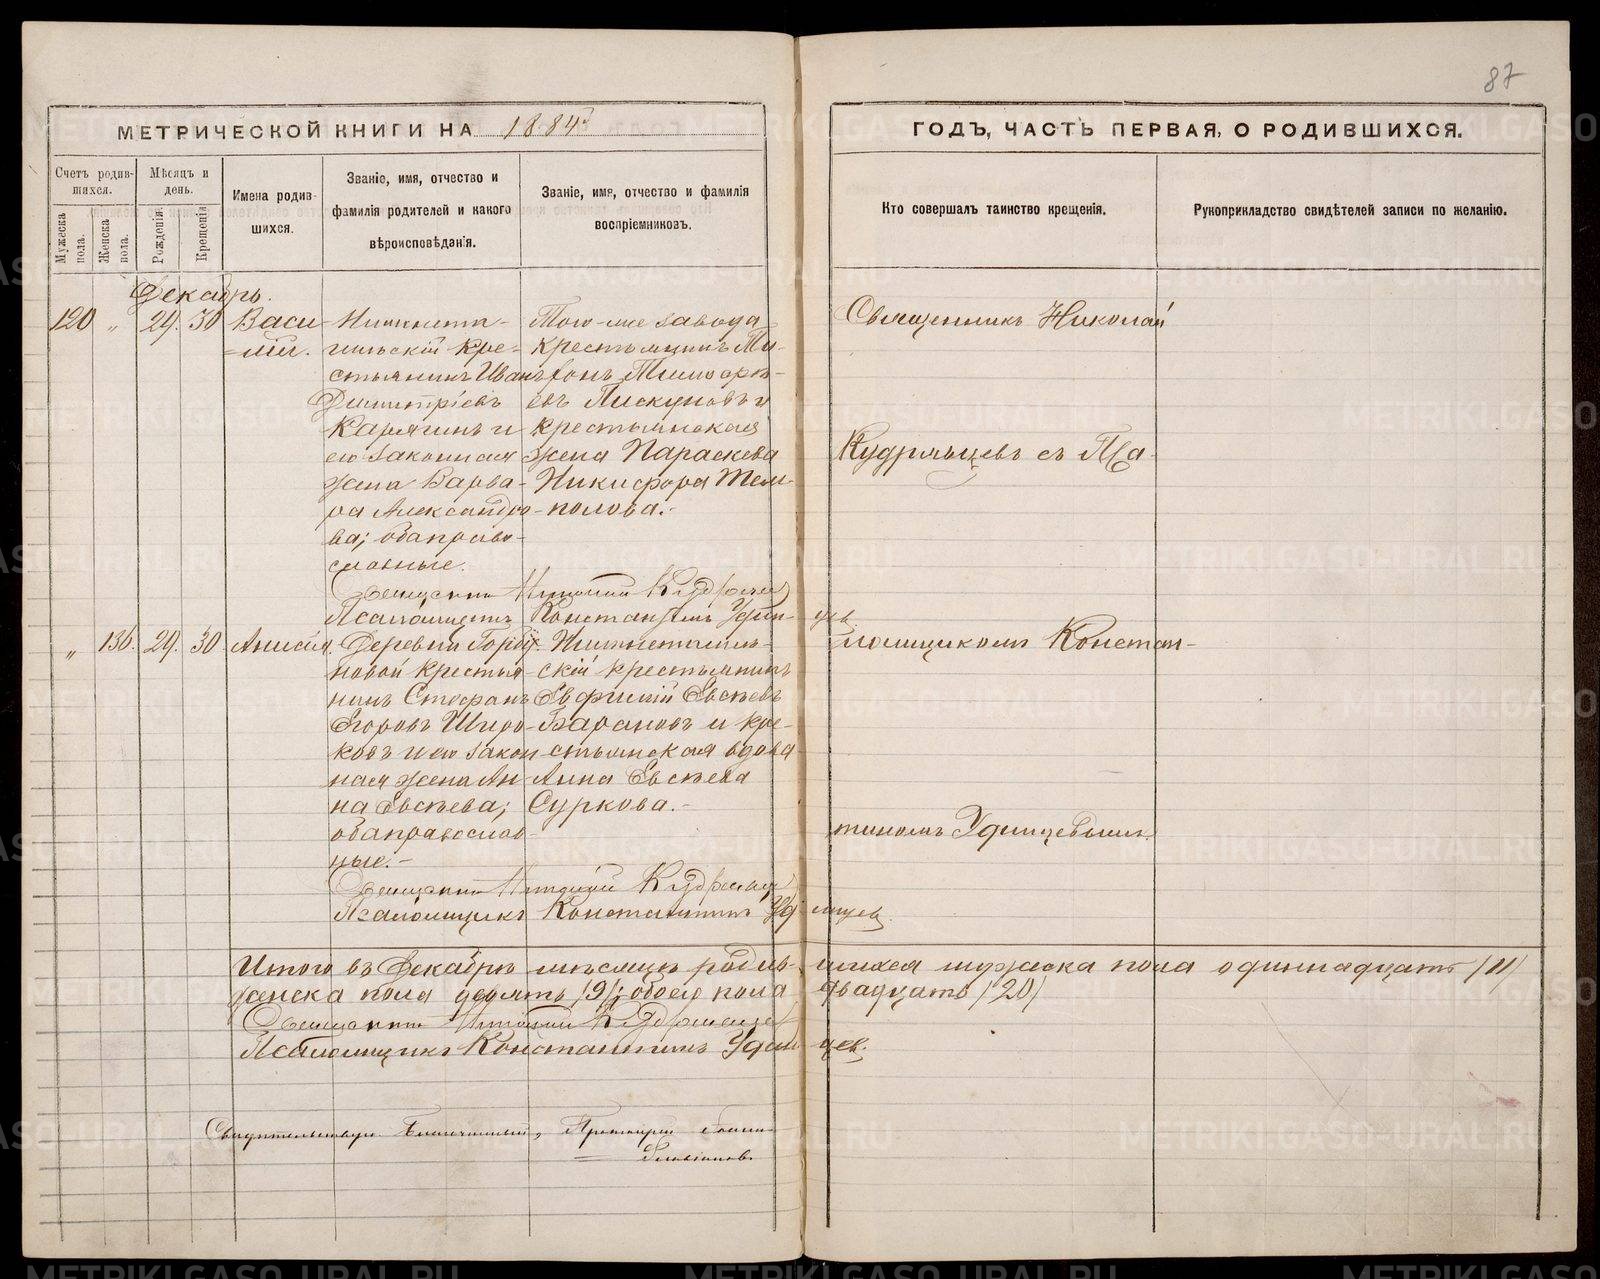 87
МЕТРИЧЕСКОЙ КНИГИ НА 1884
ГОДЪ, ЧАСТЬ ПЕРВАЯ, О РОДИВШИХСЯ.
Счетъ родившихся.
Мужеска пола.
Женска пола.
Мѣсяцъ и день.
Рожденія.
Крещенія
Имена родившихся.
Званіе, имя, отчество и фамилія родителей и какого вѣроисповѣданія.
Званіе, имя, отчество и фамилія воспріемниковъ.
Кто совершалъ таинство крещенія.
Рукоприкладство свидѣтелей записи по желанію.
Декабрь.
120 " 29. 30 Васи-
=лій.
Нижнета-
гильскій кре-
стьянинъ Иванъ
Димитріевъ
Карягинъ и
его законная
жена Варва-
ра Александро-
ва; оба право-
славные.
Того-же завода
крестьянинъ Ти-
фонъ Тимофе-
евъ Пискуновъ и
крестьянская
жена Параскева
Никифора
полова.-
Священникъ Николай
Кудрявцевъ съ Пса-
Священникъ Николай Кудрявцев
Псаломщикъ Константинъ Удинцев
" 136. 29. 30 Анисія.
Деревни Горбу-
новой крестья-
нинъ Стефанъ
Егоровъ Широ-
ковъ и его закон-
ная жена Ан-
на Евсѣева;
оба православ-
ные.-
Нижнетагиль-
скій крестьянинъ
Евфимій Евсѣевъ
Барановъ и кре-
стьянская вдова
Анна Евсѣева
Суркова.-
ломщикомъ Констан-
тиномъ Удинцевымъ.
Священникъ Николай Кудрявцев
Псаломщикъ Константинъ Удинцев
Итого въ Декабрѣ мѣсяцѣ родившихся мужеска пола одиннадцать /11/
женска пола девять /9/; обоего пола двадцать /20/
Священникъ Николай Кудрявцев
Псаломщикъ Константинъ Удинцев.
Свидѣтельствую Благочинный, Протоіерей
METRIKI.GASO-URAL.RU